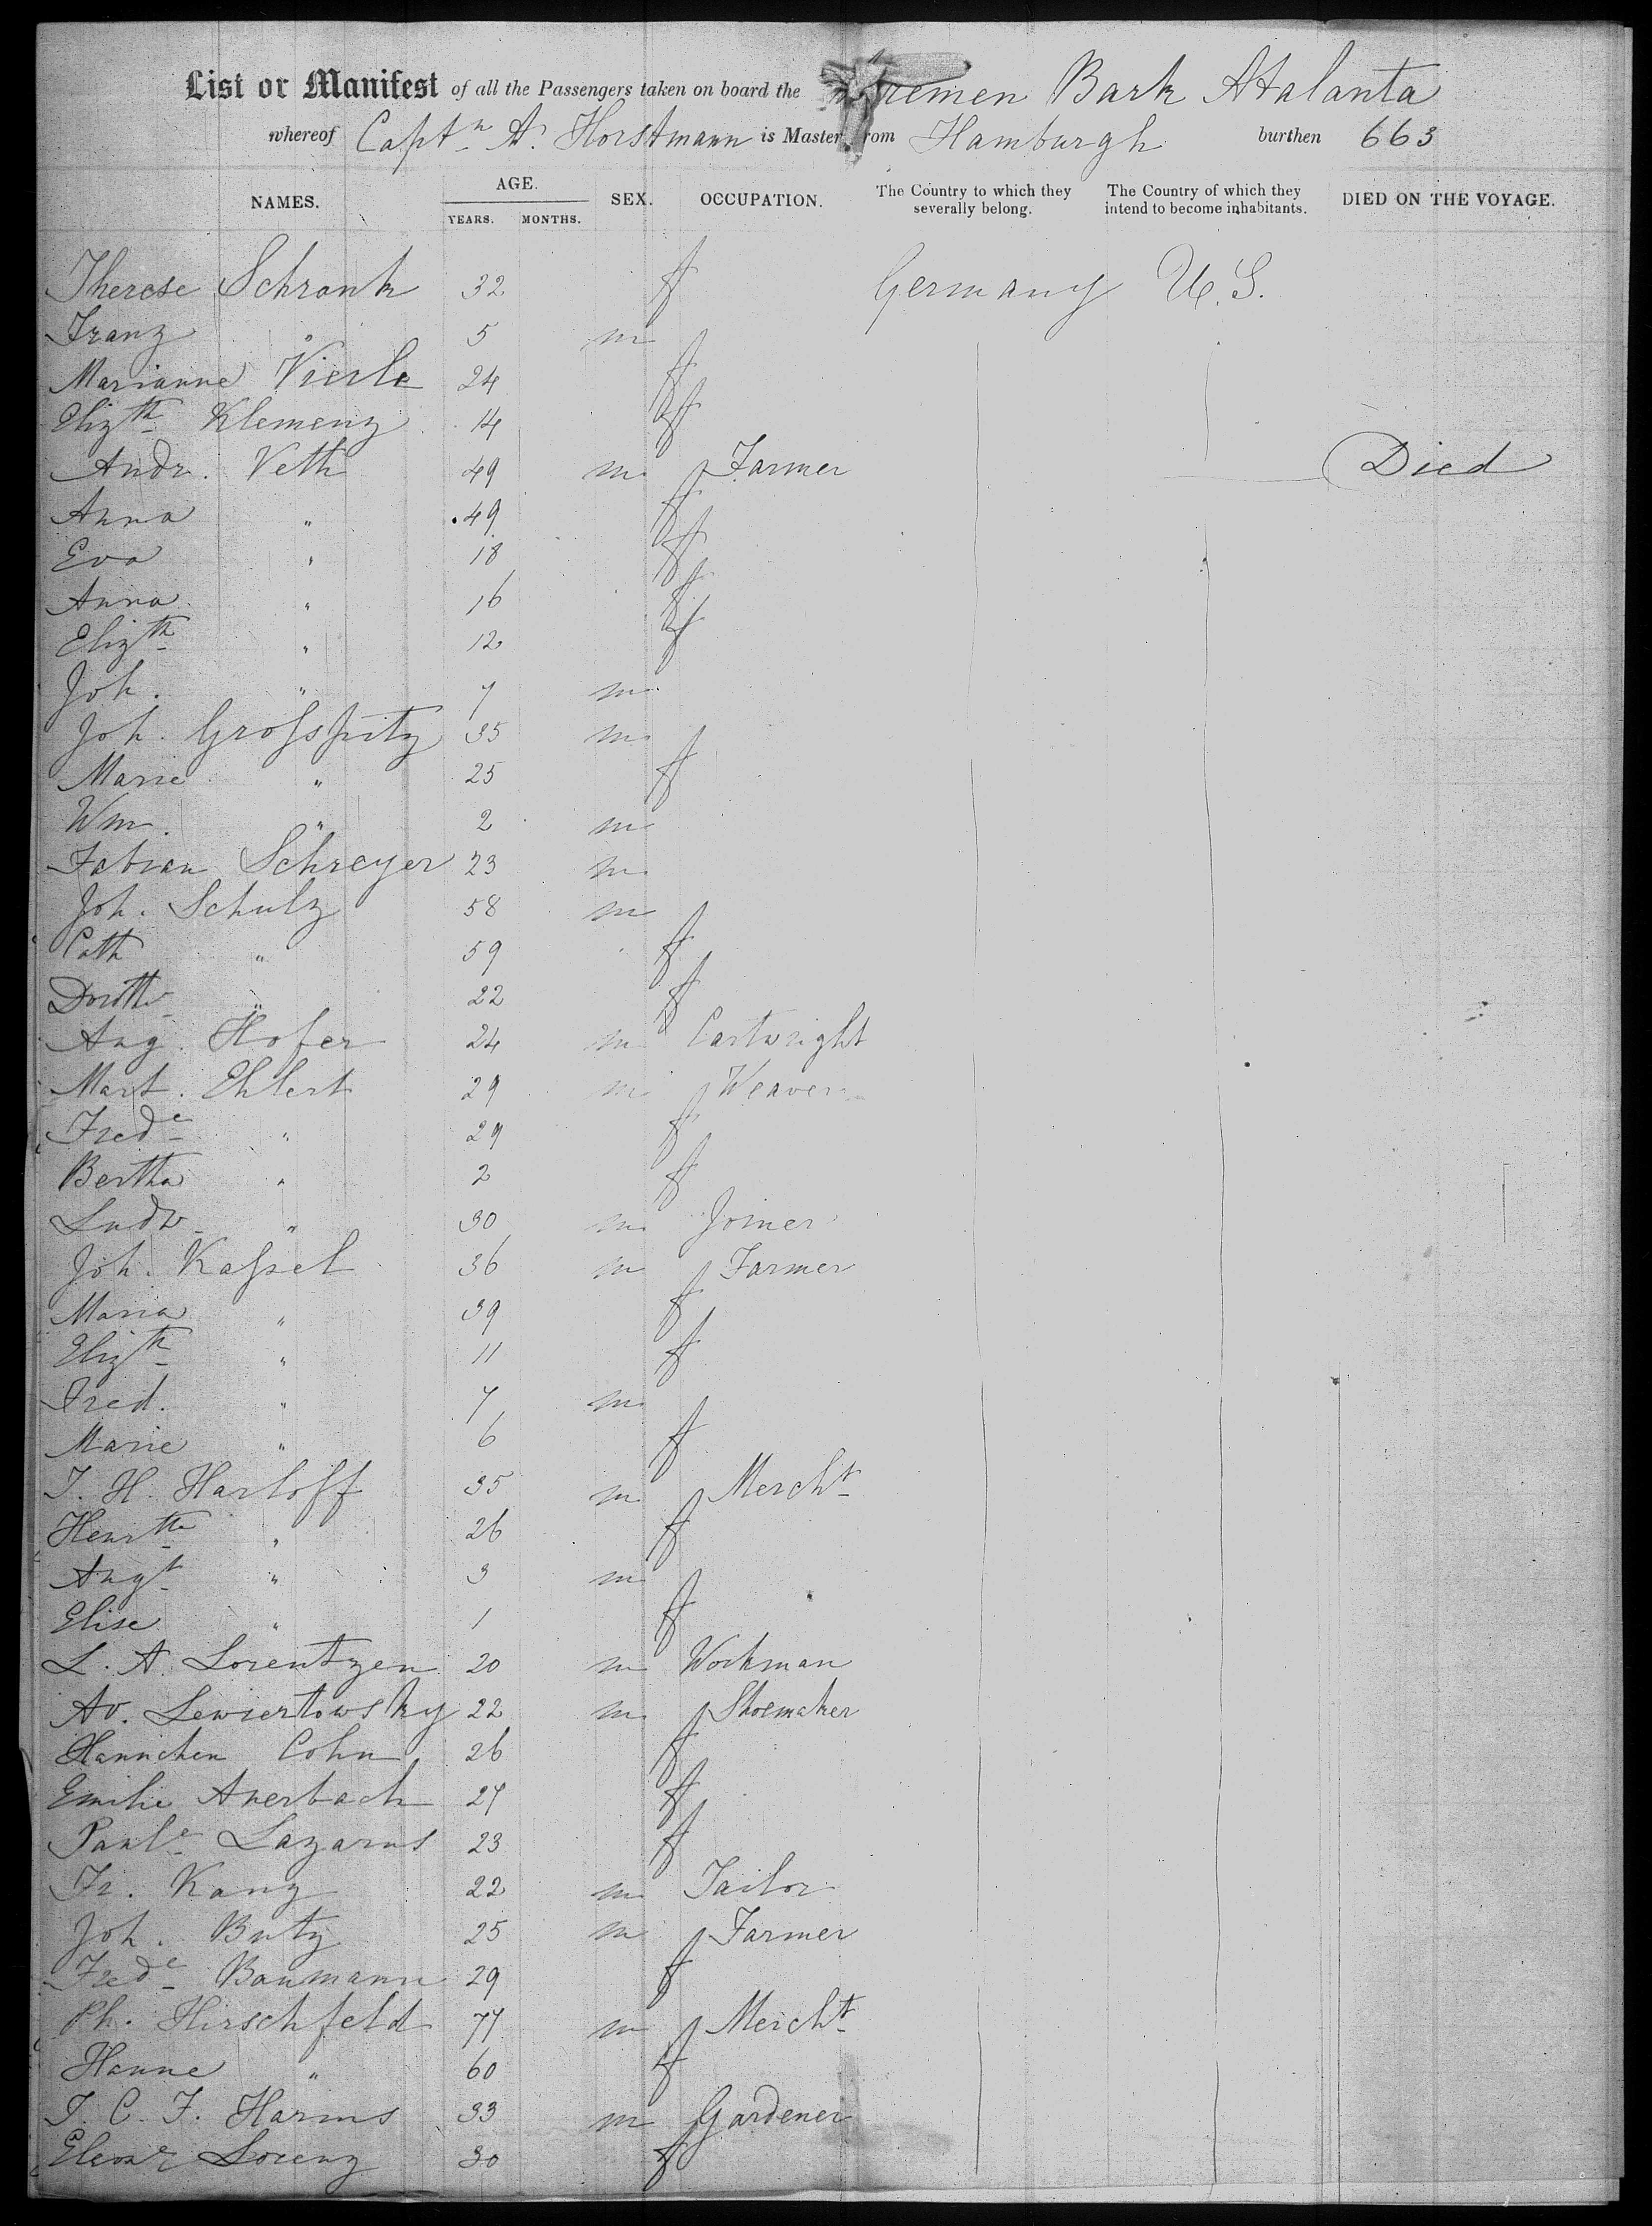 List or Manifest of all the Passengers taken on board the Bremen Bark Atalanta
whereof Captn A. Horstmann is Master, from Hamburgh burthen 663
NAMES. AGE. YEARS. MONTHS. SEX. OCCUPATION. The Country to which they severally belong. The Country of which they intend to become inhabitants. DIED ON THE VOYAGE.
Therese Schronk 32 f Germany U.S.
Franz " 5 m
Marianne Vierle 24 f
Elizth Klemenz 14 f
Andr. Veth 49 m Farmer Died
Anna " 49 f
Eva " 18 f
Anna " 16 f
Elizth " 12 f
Joh. " 7 m
Joh. Grossfritz 35 m
Marie " 25 f
Wm. " 2 m
Fabian Schreyer 23 m
Joh. Schulz 58 m
Cath " 59 f
Doroth " 22 f
Aug. Höfer 24 m Cartwright
Mart. Ehlert 29 m Weaver
Frede " 29 f
Bertha " 2 f
Ludw " 30 m Joiner
Joh. Kassel 36 m Farmer
Maria " 39 f
Elizth " 11 f
Fred. " 7 m
Marie " 6 f
J. H. Harloff 35 m Mercht
Henrtte " 26 f
Augt " 3 m
Elise " 1 f
L. A. Lorentzen 20 m Workman
Av. Lewiertowsky 22 m Shoemaker
Hannchen Cohn 26 f
Emilie Auerbach 27 f
Paule Lazarus 23 f
Fr. Kanz 22 m Tailor
Joh. Butz 25 m Farmer
Frede Baumann 29 f
Ph. Hirschfeld 77 m Mercht
Hanne " 60 f
J. C. F. Harms 33 m Gardener
Eleonr Lorenz 30 f